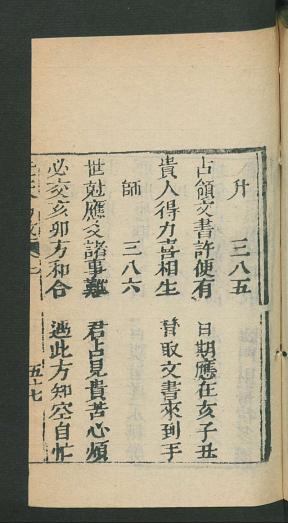 升　三八五
占領文書許便有　日期應在亥子丑
貴人得力喜相生　管取文書來到手
師　三八六
世尅應爻諸事難　君占見貴苦心煩
必交亥卯方和合　過此方知空自忙
五十七